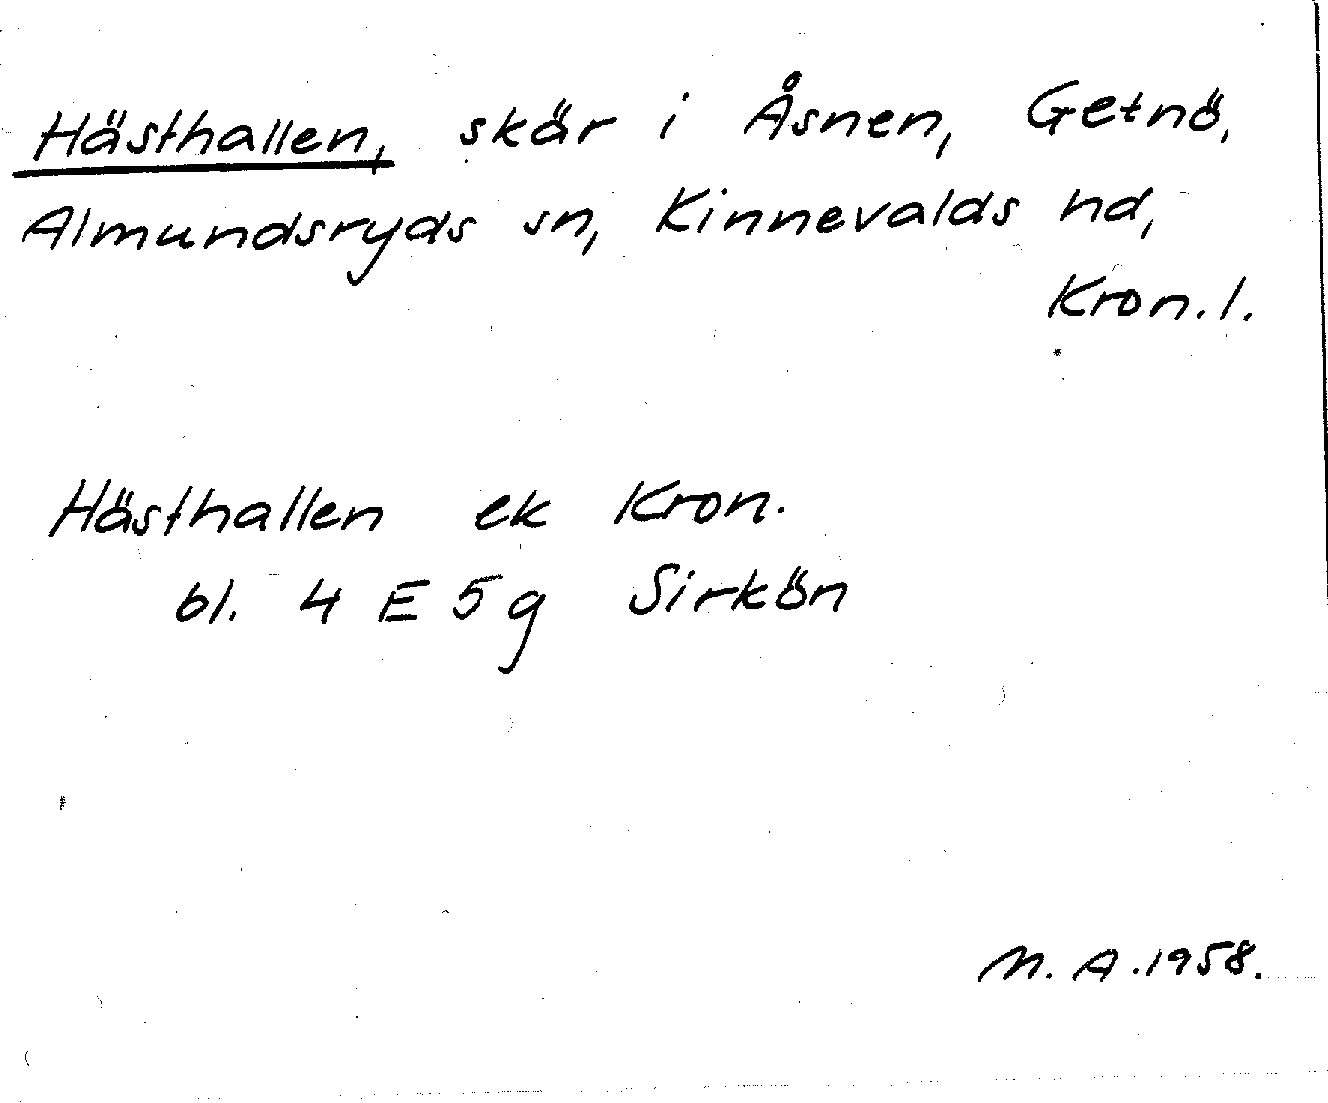 Hästhallen, skär i Åsnen, Getnö,
Almundsryds sn, Kinnevalds hd,
Kron. l.
Hästhallen ek Kron.
bl. 4 E 5 g Sirkön
M. A. 1958.